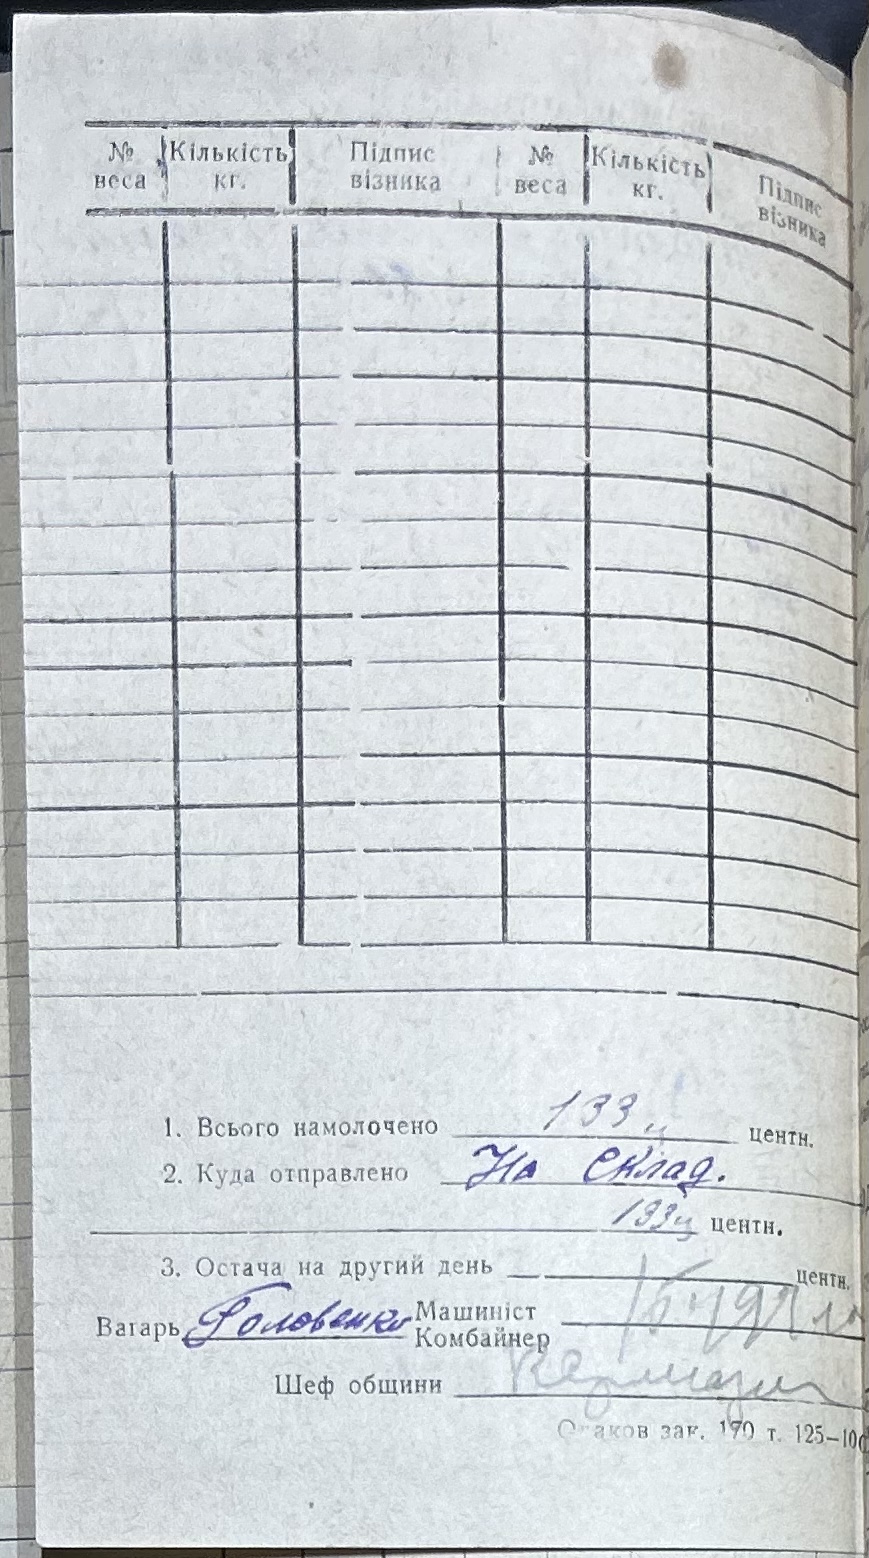 № веса Кількість кг. Підпис візника № веса Кількість кг. Підпис візника
1. Всього намолочено 133 ц центн.
2. Куда отправлено На склад.
133 ц центн.
3. Остача на другий день центн.
Вагарь Головенко Машиніст
Комбайнер
Шеф общини
зак. 170 т. 125—10